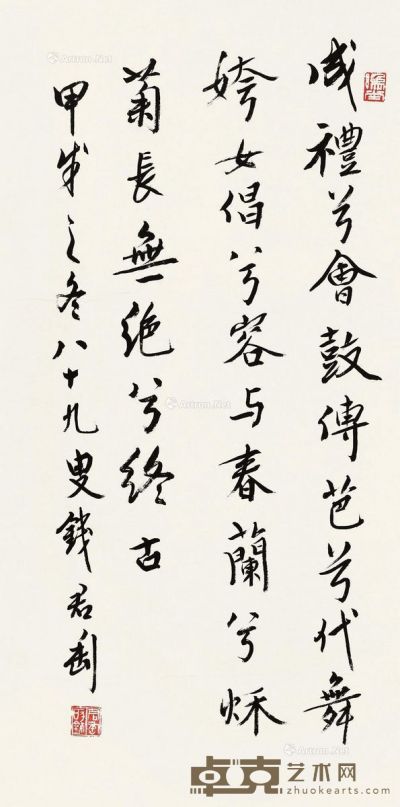 成禮兮會鼓傳芭兮代舞
姱女倡兮容与春蘭兮秌
菊長無絶兮終古
甲戌之冬八十九叟錢君匋
Artron.Net
Artron.Net
Artron.Net
Artron.Net
Artron.Net
卓克艺术网
zhuokearts.com